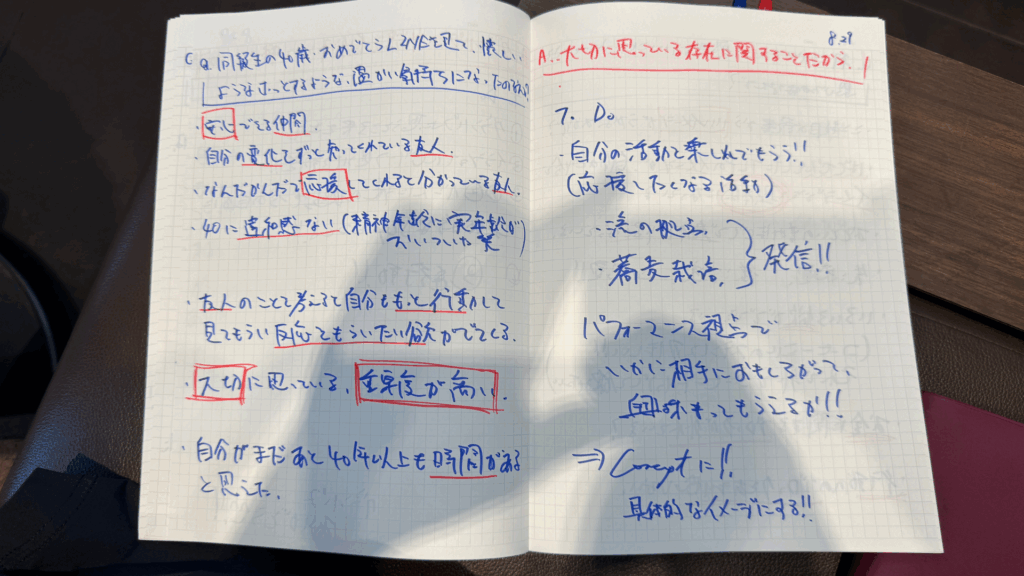 Q. 同級生の40歳、おめでとうLINEを見て、懐しい
ようなほっとするような、温かい気持ちになったのはなぜ
・安心できる仲間.
・自分の変化をずっと知ってくれている友人.
・なんだかんだで応援してくれると分かっている友人.
・40に違和感ない(精神年齢に実年齢が
おいついた 笑)
・友人のことを考えると自分ももっと行動して
見てもらい反応してもらいたい欲がでてくる.
・大切に思っている、重要度が高い.
・自分がまだあと40年以上も時間がある
と思えた.
8.29
A. 大切に思っている存在に関することだから.
7. Do
・自分の活動を楽しんでもらう!!
(応援したくなる活動)
蕎麦栽培.
発信!!
パフォーマンス視点で
いかに相手におもしろがって、
興味もってもらえるか!!
⇒ Conceptに!!
具体的なイメージにする!!